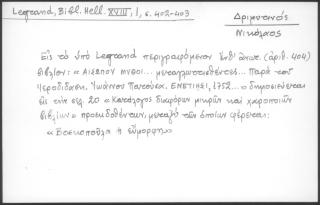 Legrand, Bibl. Hell. XVIII, 1, σ. 402-403
Δριμυτινός
Νικόλαος
Εἰς τὸ ὑπὸ Legrand περιγραφόμενον (ἀριθ. 404)
βιβλίον: «ΑΙΣΩΠΟΥ ΜΥΘΟΙ... μεταγλωτισθέντες... Παρὰ τοῦ
Ἱεροδιδασκ. Ἰωάννου Πατούσα. ΕΝΕΤΙΗΣΙ, 1752...» δημοσιεύεται
εἰς τὴν σελ. 20 «Κατάλογος διαφόρων μικρῶν καὶ χαροποιῶν
βιβλίων» προεκδοθέντων, μεταξὺ τῶν ὁποίων φέρεται:
«Βοσκοπούλα ἡ εὔμορφη»